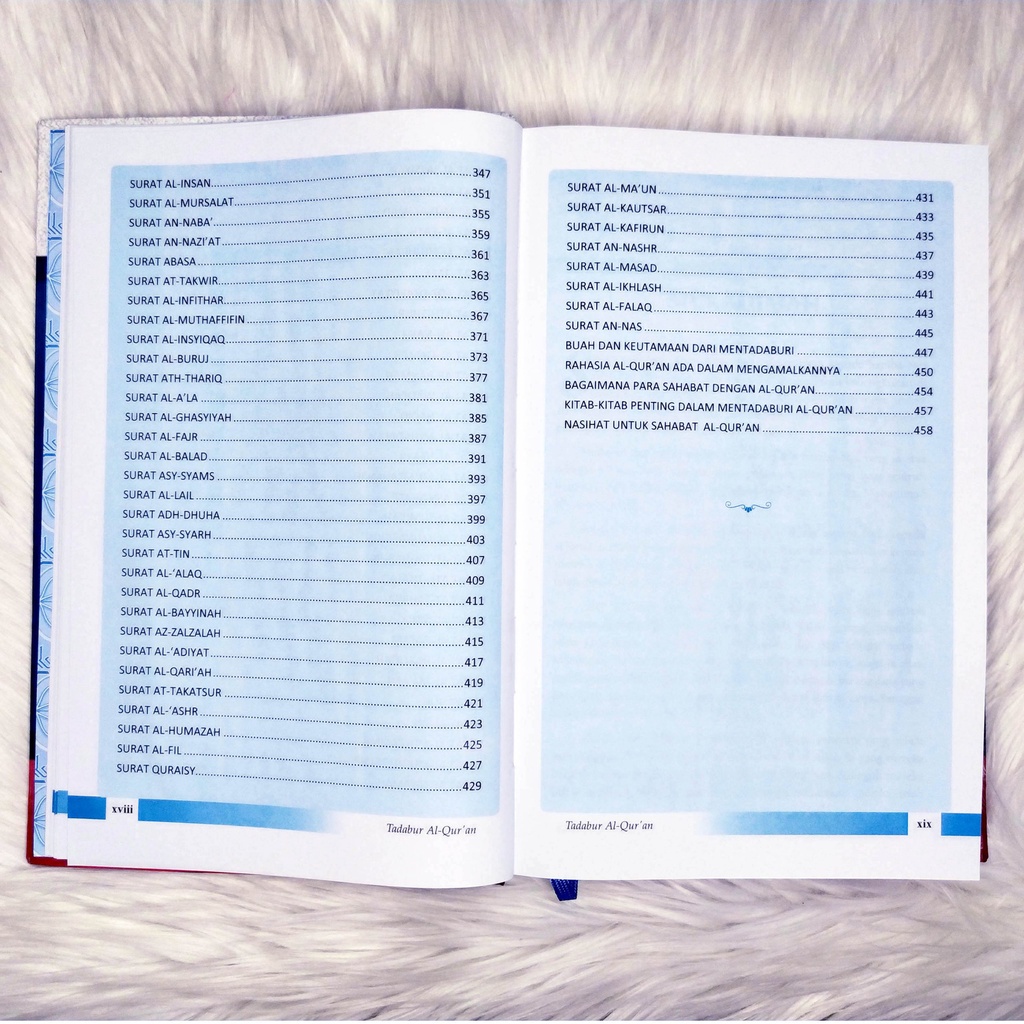 SURAT AL-INSAN........347
SURAT AL-MURSALAT........351
SURAT AN-NABA'........355
SURAT AN-NAZI'AT........359
SURAT ABASA........361
SURAT AT-TAKWIR........363
SURAT AL-INFITHAR........365
SURAT AL-MUTHAFFIFIN........367
SURAT AL-INSYIQAQ........371
SURAT AL-BURUJ........373
SURAT ATH-THARIQ........377
SURAT AL-A'LA........381
SURAT AL-GHASYIYAH........385
SURAT AL-FAJR........387
SURAT AL-BALAD........391
SURAT ASY-SYAMS........393
SURAT AL-LAIL........397
SURAT ADH-DHUHA........399
SURAT ASY-SYARH........403
SURAT AT-TIN........407
SURAT AL-'ALAQ........409
SURAT AL-QADR........411
SURAT AL-BAYYINAH........413
SURAT AZ-ZALZALAH........415
SURAT AL-'ADIYAT........417
SURAT AL-QARI'AH........419
SURAT AT-TAKATSUR........421
SURAT AL-'ASHR........423
SURAT AL-HUMAZAH........425
SURAT AL-FIL........427
SURAT QURAISY........429
xviii
Tadabur Al-Qur'an
SURAT AL-MA'UN........431
SURAT AL-KAUTSAR........433
SURAT AL-KAFIRUN........435
SURAT AN-NASHR........437
SURAT AL-MASAD........439
SURAT AL-IKHLASH........441
SURAT AL-FALAQ........443
SURAT AN-NAS........445
BUAH DAN KEUTAMAAN DARI MENTADABURI........447
RAHASIA AL-QUR'AN ADA DALAM MENGAMALKANNYA........450
BAGAIMANA PARA SAHABAT DENGAN AL-QUR'AN........454
KITAB-KITAB PENTING DALAM MENTADABURI AL-QUR'AN........457
NASIHAT UNTUK SAHABAT AL-QUR'AN........458
Tadabur Al-Qur'an
xix